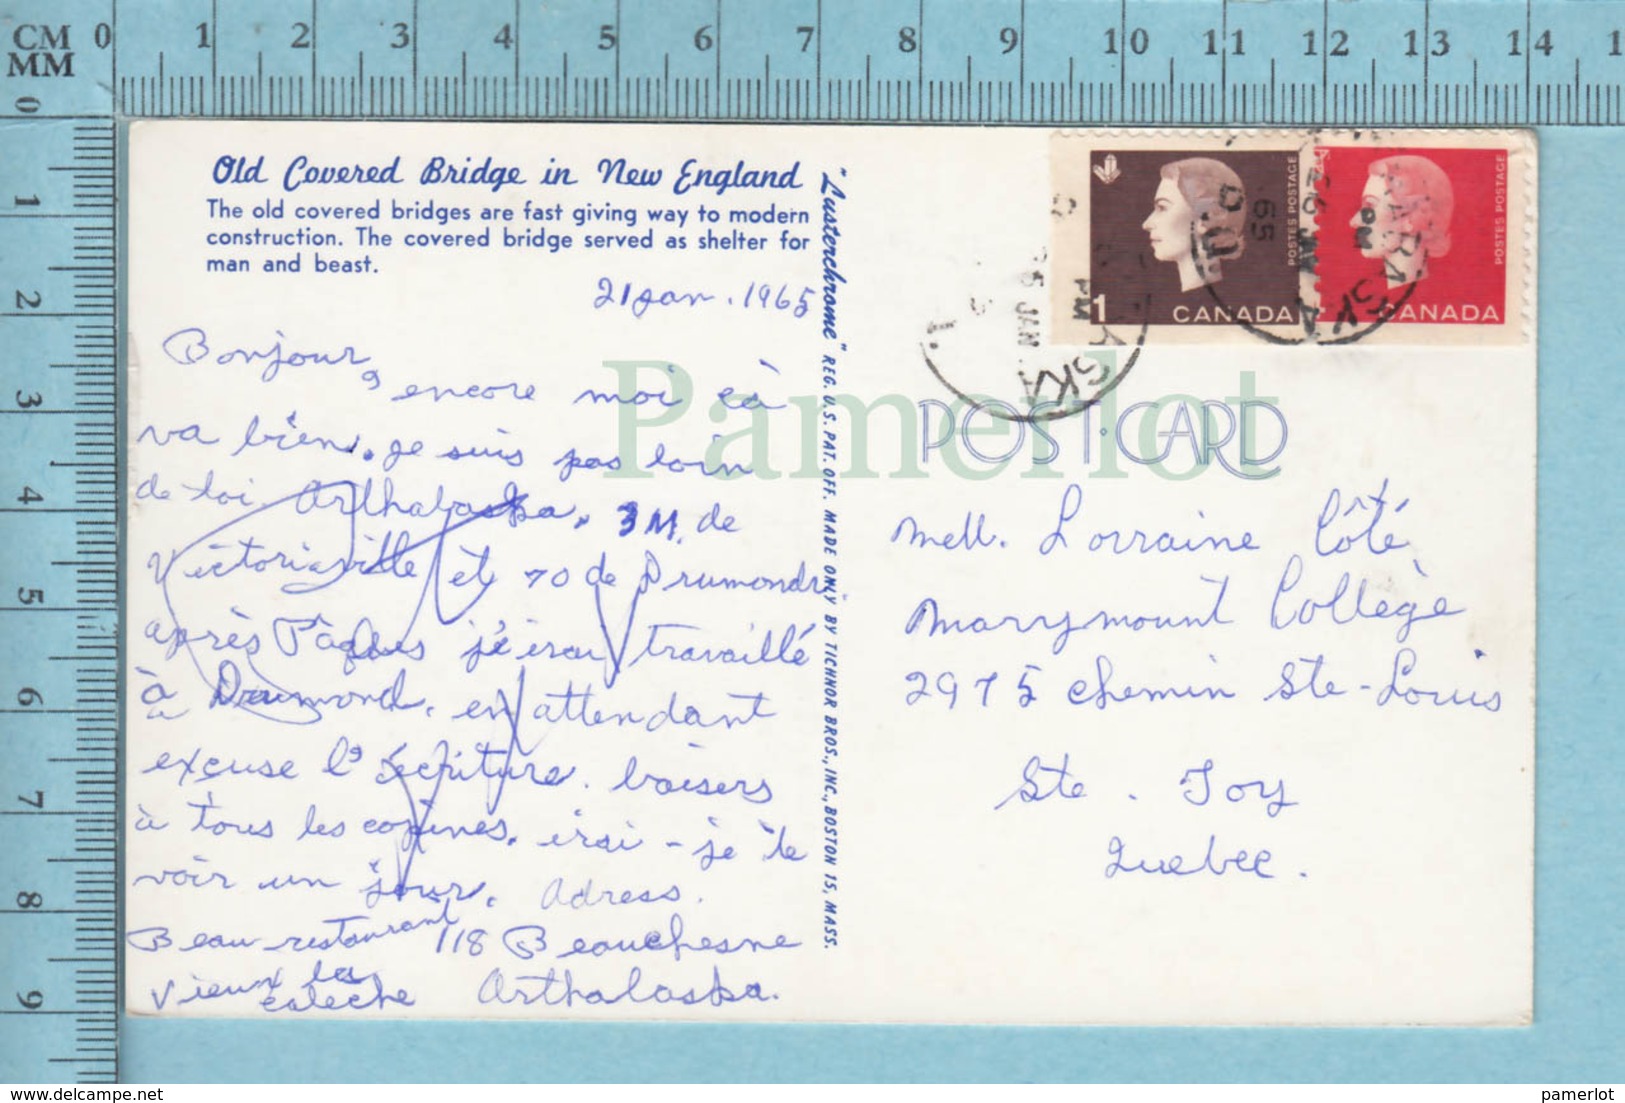 CM 0 1 2 3 4 5 6 7 8 9 10 11 12 13 14 1
MM
0
1
2
3
4
5
6
7
8
9
Old Covered Bridge in New England
The old covered bridges are fast giving way to modern
construction. The covered bridge served as shelter for
man and beast.
21 jan. 1965
Bonjour,
encore moi çà
va bien. je suis pas loin
de toi Arthabaska. 3 M. de
Victoriaville et 70 de Drumondv.
après Pâques j'éirai travaillé
à Drumond. en attendant
excuse l'écriture. baisers
à tous les copines. irai-je te
voir un jour. Adress.
Beau restaurant 118 Beauchesne
Vieux la
caleche Arthabaska.
"Lusterchrome" REG. U.S. PAT. OFF. MADE ONLY BY TICHNOR BROS., INC., BOSTON 15, MASS.
1 CANADA
POSTES POSTAGE
4 CANADA
POSTES POSTAGE
PM
JAN
65
P.Q.
POST CARD
Pamerlot
Mell. Lorraine Côté
Marymount Collège
2975 chemin Ste-Louis
Ste. Foy
Quebec.
pamerlot